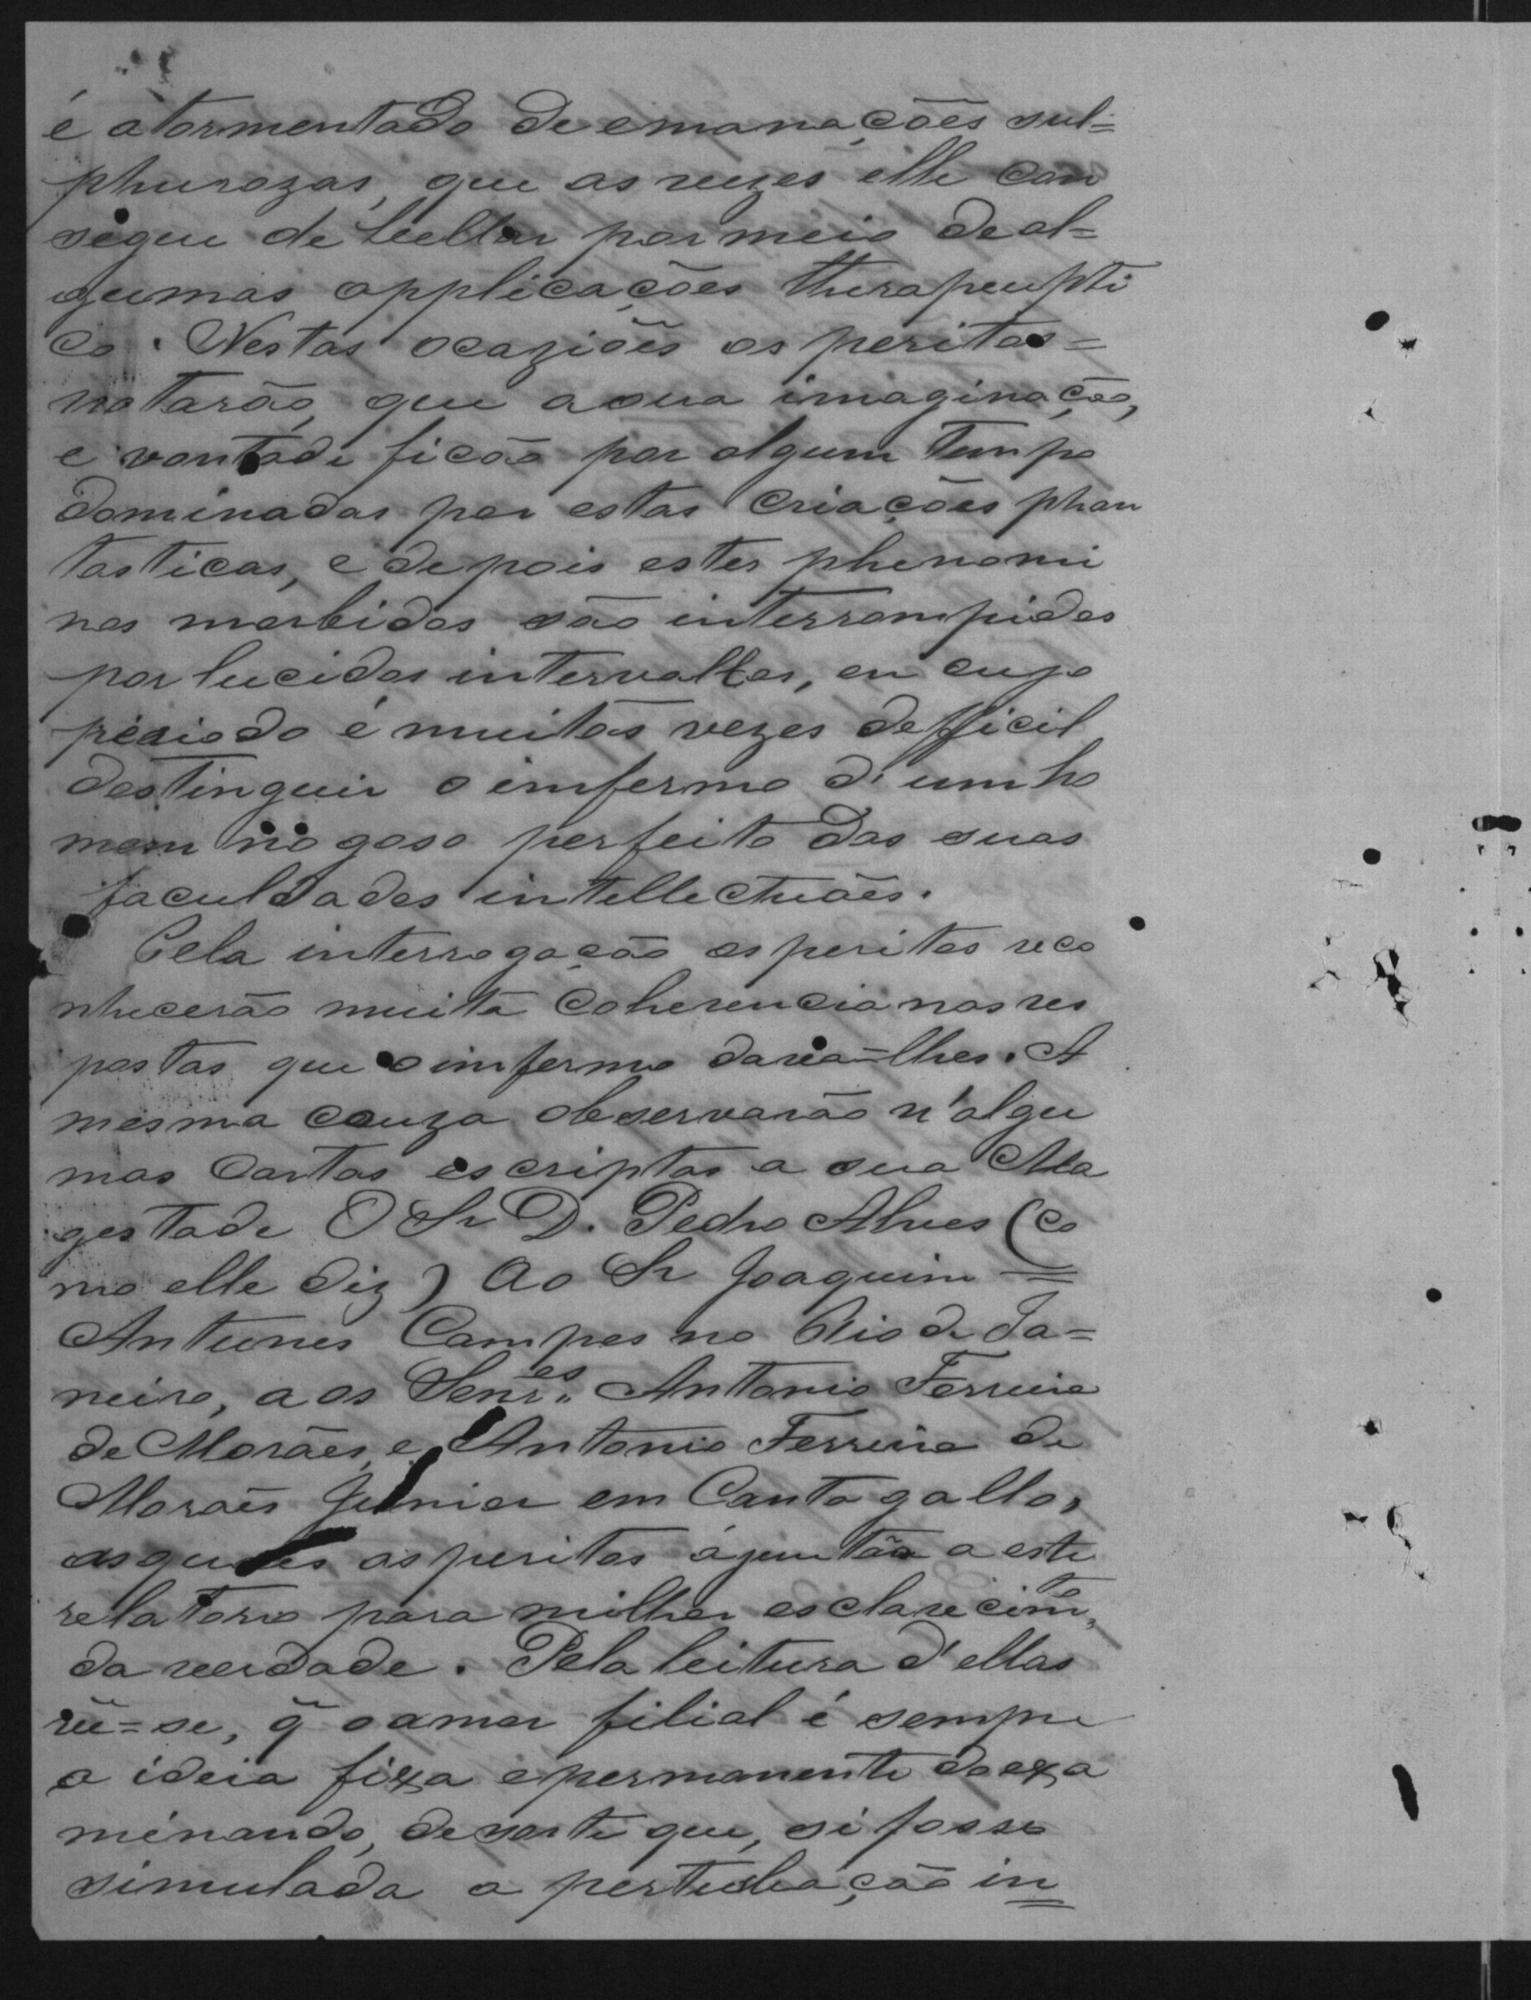 é atormentado de emanações sul=
phurozas, que as vezes elle con
segue debellar por meio de al=
gumas applicações therapeupti
co. Nestas ocaziões os peritos=
notarão, que a sua imaginação,
e vontade ficão por algum tempo
dominadas por estas criações phan
tasticas, e depois estes phenomi
nos morbidos são interrompidos
por lucidos intervallos, en cujo
periodo é muitas vezes defficil
destinguir o imfermo d'um ho
mem no goso perfeito das suas
faculdades intellectuães.
Pela interrogação os peritos reco
nhecerão muita coherencia nas res
postas que o imfermo dava=lhes. A
mesma couza observarão n'algu
mas cartas escriptas a sua Ma
gestade O Sr D. Pedro Alves (co
mo elle diz) Ao Sr Joaquim
Antunes Campos no Rio de Ja=
neiro, a os Senr.es Antonio Ferreira
de Morães, e Antonio Ferreira de
Moraes Junior em Canta gallo,
as quaes os peritos ajuntão a este
relatorio para milhor esclarecim.to
da verdade. Pela leitura d'ellas
vê=se, q̃ o amor filial é sempre
a ideia fixa e permanente do exa
minando, de sorte que, si fosse
simulada a pertubação in